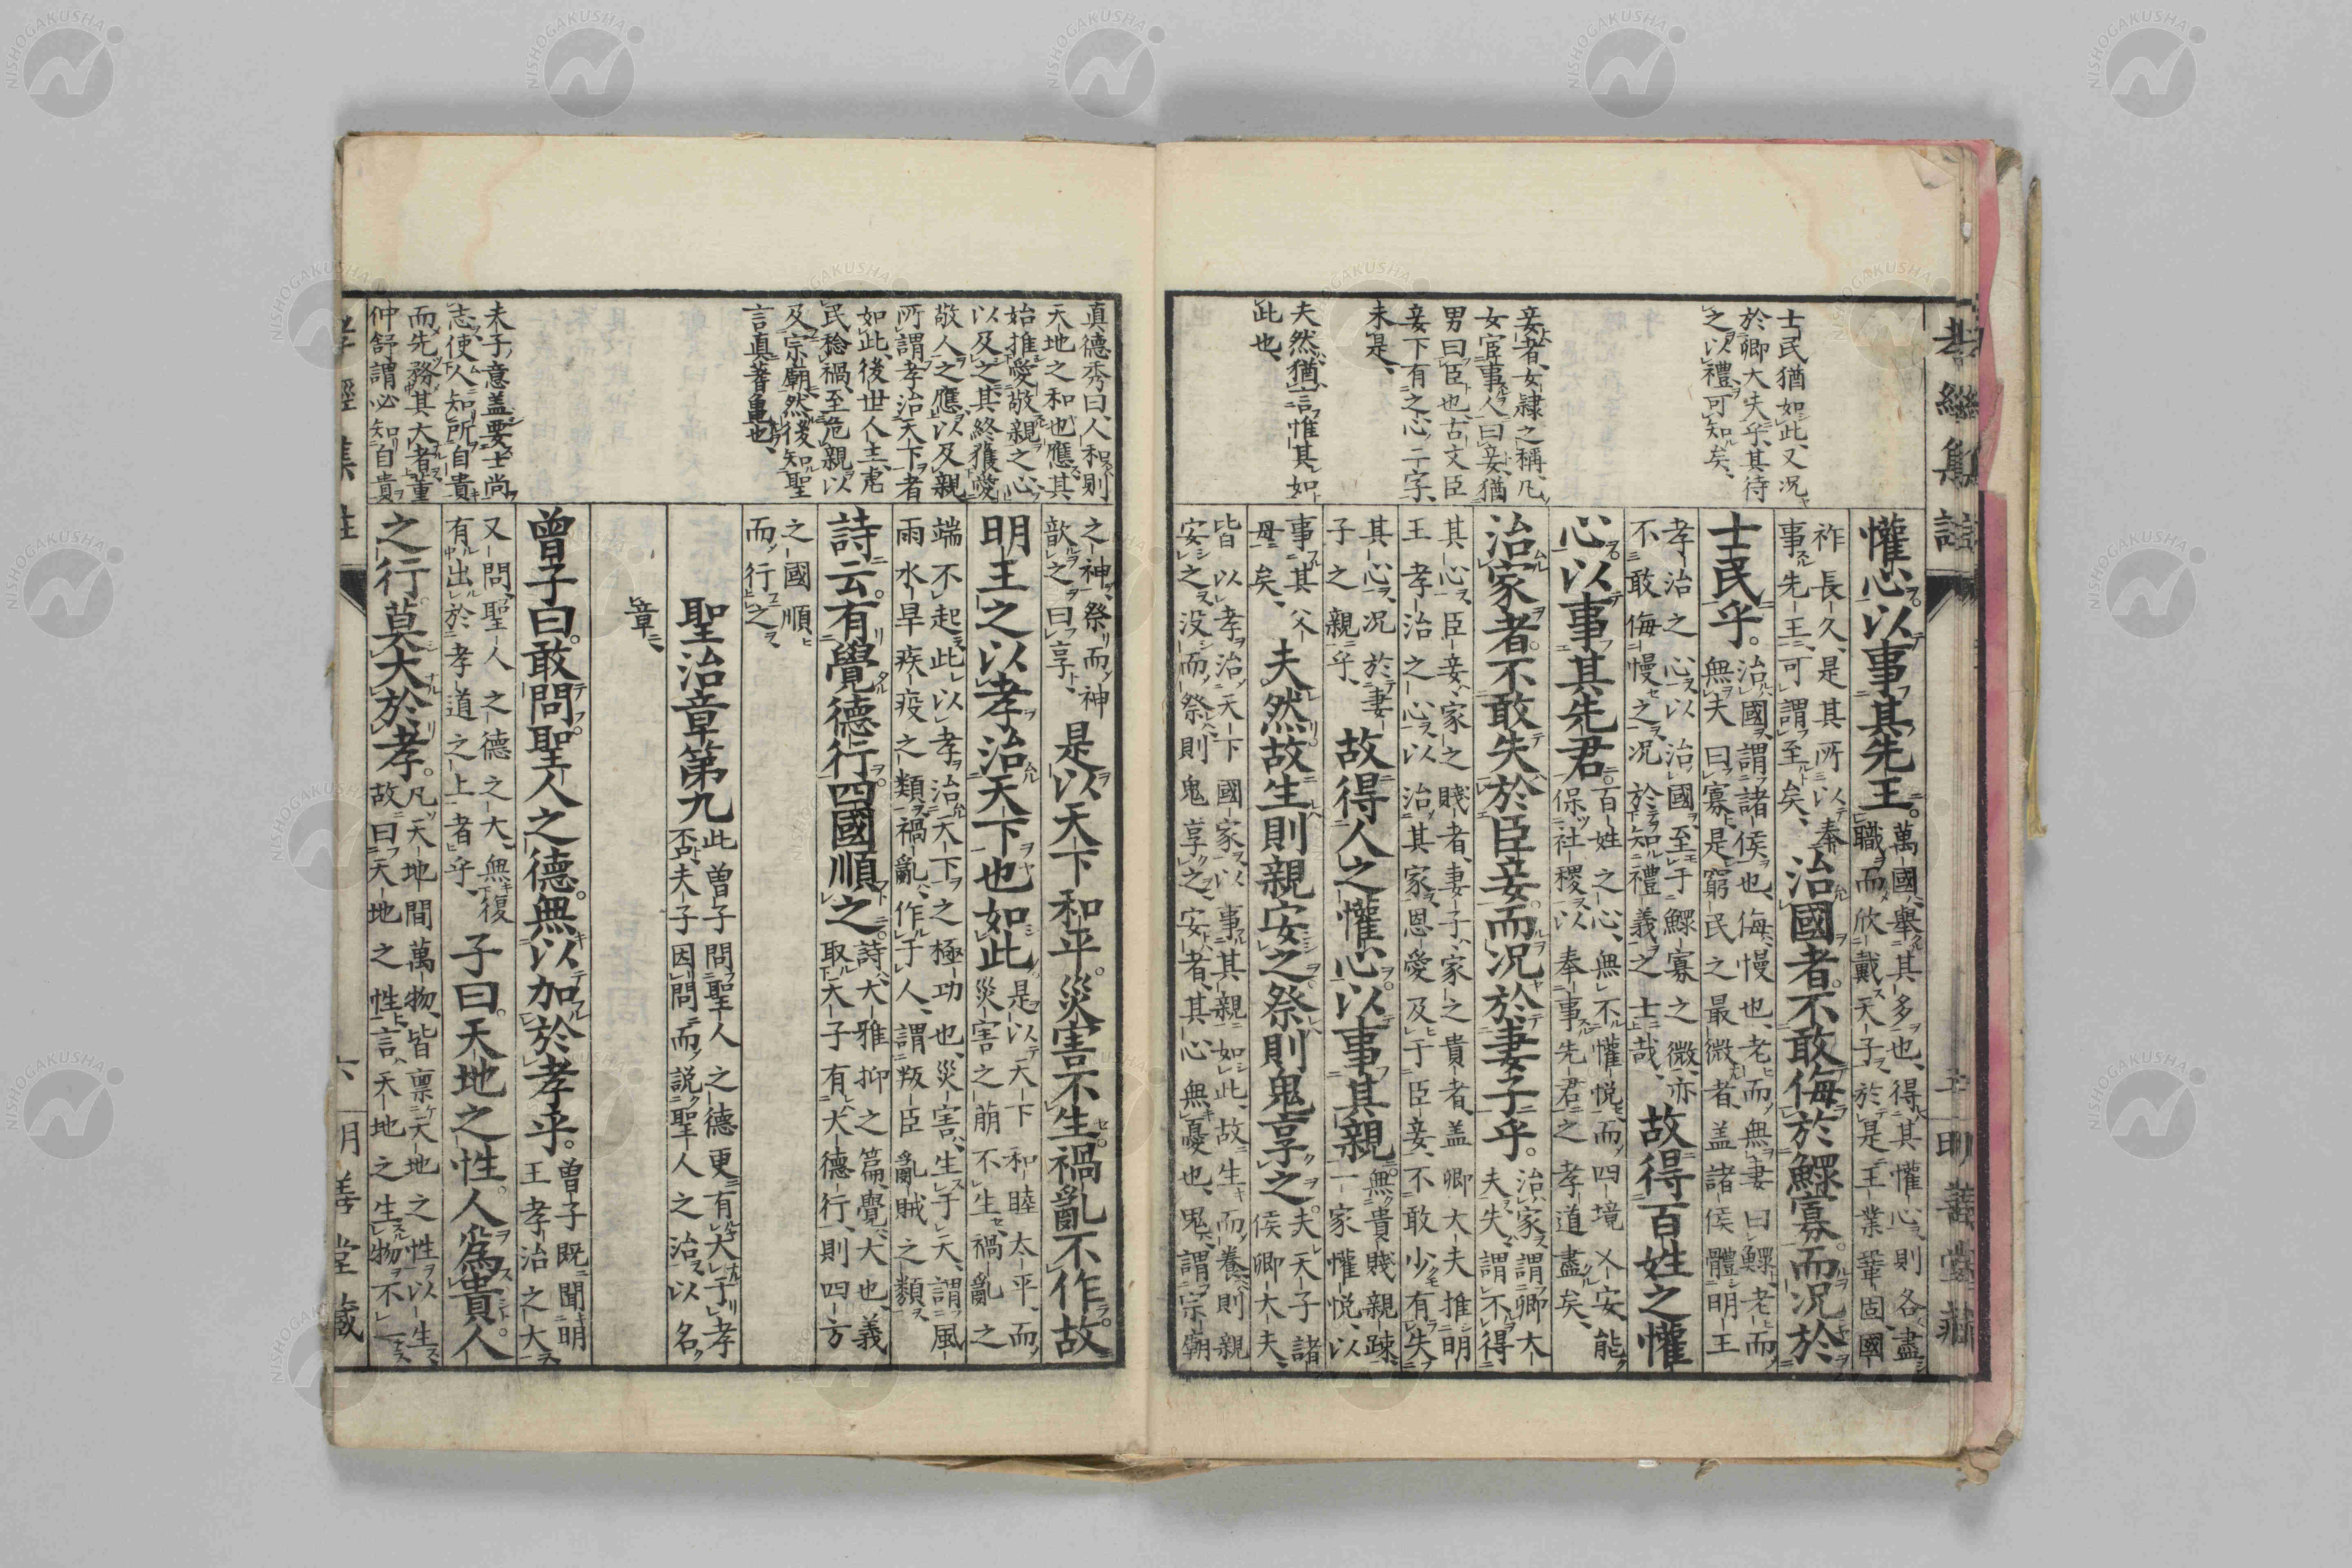 士民猶如此、又况
於卿大夫乎、其待
之以禮、可知矣、
妾者、女隷之稱、凡
女官事人曰妾、猶
男曰臣也、古文臣
妾下有之心二字、
未是、
夫然、猶言惟其如
此也、
懽心以事其先王。萬國、舉其多也、得其懽心、則各盡
職而欣戴天子、於是王業鞏固、國
祚長久、是其所以奉
事先王、可謂至矣、治國者。不敢侮於鰥寡。而况於
士民乎。治國、謂諸侯也、侮、慢也、老而無妻曰鰥、老而
無夫曰寡、是窮民之最微者、盖諸侯體明王
孝治之心、以治國、至于鰥寡之微、亦
不敢侮慢之、况於知禮義之士哉、故得百姓之懽
心。以事其先君。百姓之心、無不懽悅、而四境乂安、能
保社稷、以奉事先君之孝道盡矣、
治家者。不敢失於臣妾。而况於妻子乎。治家、謂卿大
夫、失、謂不得
其心、臣妾、家之賤者、妻子、家之貴者、盖卿大夫推明
王孝治之心、以治其家、恩愛及于臣妾、不敢少有失
其心、况於妻
子之親乎、故得人之懽心。以事其親。無貴賤親踈、
一家懽悅、以
事其父
母矣、夫然。故生則親安之。祭則鬼享之。夫天子諸
侯卿大夫、
皆以孝治天下國家、以事其親、如此、故生而養、則親
安之、没而祭、則鬼享之、安者、其心無憂也、鬼、謂宗廟
孝經集註
五
明善堂藏
真德秀曰、人和則
天地之和也應、其
始推愛敬親之心、
以及之、其終獲愛
敬人之應、以及親、
所謂孝治天下者
如此、後世人主、虐
民稔禍、至危親、以
及宗廟、然後知聖
言真蓍龜也、
朱子意盖要士尚
志、使人知所自貴
而先務其大者、董
仲舒謂必知自貴
之神、祭而神
歆之曰享、是以天下和平。災害不生。禍亂不作。故
明王之以孝治天下也如此。是以天下和睦太平、而
災害之萠不生、禍亂之
端不起、此以孝治天下之極功也、災害、生于天、謂風
雨水旱疾疫之類、禍亂、作于人、謂叛臣亂賊之類、
詩云。有覺德行。四國順之。詩、大雅抑之篇、覺、大也、義
取天子有大德行、則四方
之國順
而行之、
聖治章第九此曾子問聖人之德更有大于孝
否、夫子因問而説聖人之治、以名
章、
曾子曰。敢問聖人之德。無以加於孝乎。曾子既聞明
王孝治之大、
又問聖人之德之大、無復
有出於孝道之上者乎、子曰。天地之性。人爲貴。人
之行。莫大於孝。凡天地間萬物、皆禀天地之性以生、
故曰天地之性、言天地之生物、不一、
孝經集註
六
明善堂藏